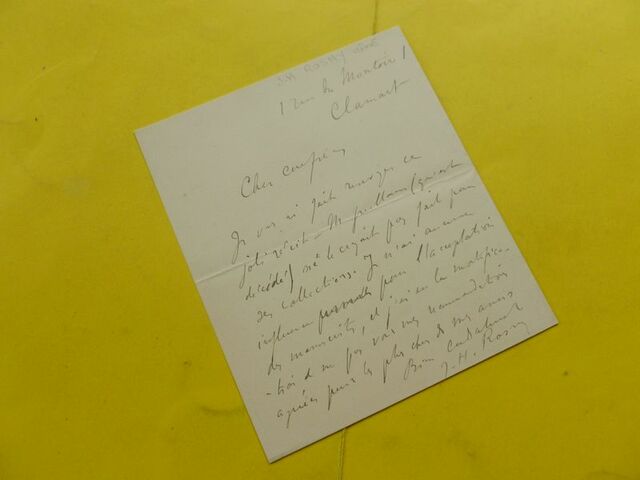 J H ROSNY aîné
1 rue du Montoir
Clamart
Cher confrère,
Je vous ai fait renvoyer ce
joli récit. M. (qui est
décidé) ne le croyait pas fait pour
ses collections. Je n'ai aucune
influence pour l'acceptation
des manuscrits, et j'ai eu la mortifica-
-tion de ne pas voir mes recommandations
agréées pour les plus chers de mes amis
Bien cordialement
J.-H. Rosny